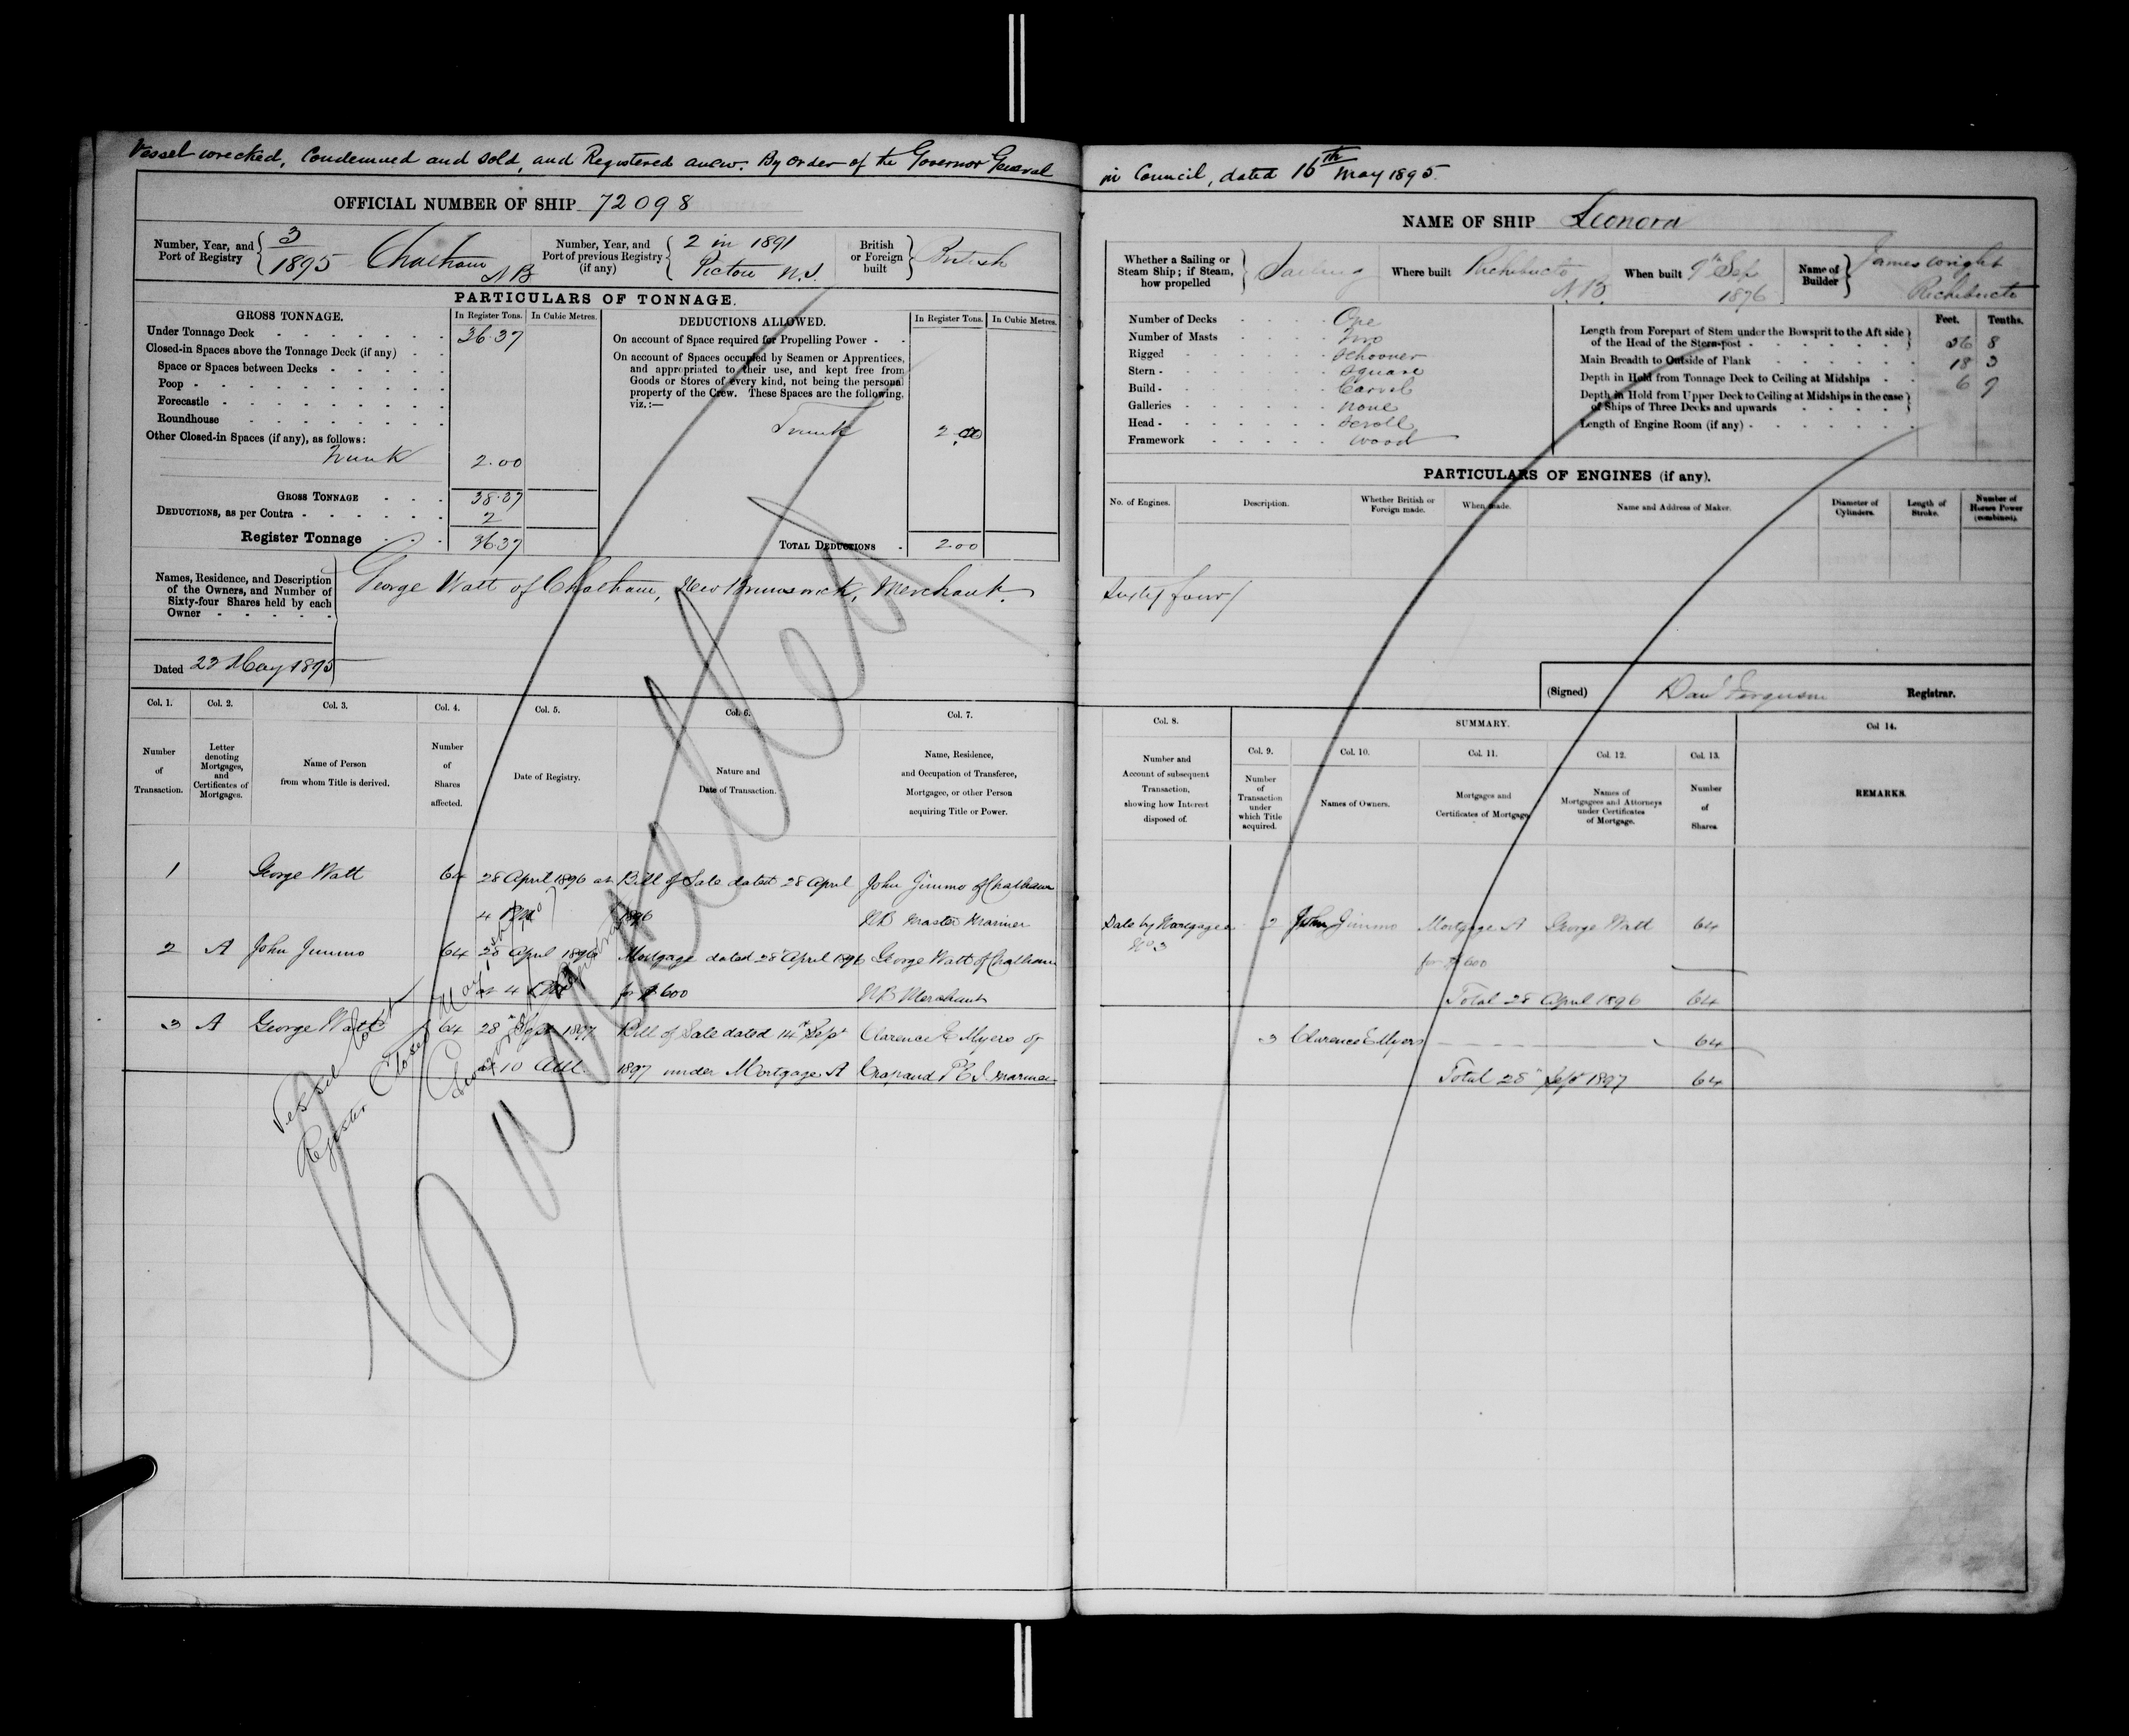 Vessel wrecked, Condemned and Sold, and Registered anew. By order of the Governor General in Council, dated 16th May 1895.
OFFICIAL NUMBER OF SHIP 72098
NAME OF SHIP Leonora
Number, Year, and Port of Registry
3
1895 Chatham
NB
Number, Year, and Port of previous Registry (if any)
2 in 1891
Pictou N.S.
British or Foreign built
British
PARTICULARS OF TONNAGE.
GROSS TONNAGE.
In Register Tons.
In Cubic Metres.
Under Tonnage Deck 36.37
Closed-in Spaces above the Tonnage Deck (if any)
Space or Spaces between Decks
Poop
Forecastle
Roundhouse
Other Closed-in Spaces (if any), as follows:
Trunk 2.00
GROSS TONNAGE 38.37
DEDUCTIONS, as per Contra 2
Register Tonnage 36.37
DEDUCTIONS ALLOWED.
In Register Tons.
In Cubic Metres.
On account of Space required for Propelling Power
On account of Spaces occupied by Seamen or Apprentices,
and appropriated to their use, and kept free from
Goods or Stores of every kind, not being the personal
property of the Crew. These Spaces are the following,
viz.:—
Trunk 2.00
TOTAL DEDUCTIONS 2.00
Names, Residence, and Description
of the Owners, and Number of
Sixty-four Shares held by each
Owner
George Watt of Chatham, New Brunswick, Merchant. Sixty four/
Dated 22 May 1895
Whether a Sailing or
Steam Ship; if Steam,
how propelled
Sailing
Where built Richibucto
N.B.
When built 9th Sep
1876
Name of Builder
James Wright
Richibucto
Number of Decks One
Number of Masts Two
Rigged Schooner
Stern Square
Build Carvel
Galleries None
Head Scroll
Framework Wood
Feet. Tenths.
Length from Forepart of Stem under the Bowsprit to the Aft side
of the Head of the Stern-post 56 8
Main Breadth to Outside of Plank 18 3
Depth in Hold from Tonnage Deck to Ceiling at Midships 6 7
Depth in Hold from Upper Deck to Ceiling at Midships in the case
of Ships of Three Decks and upwards
Length of Engine Room (if any)
PARTICULARS OF ENGINES (if any).
No. of Engines.
Description.
Whether British or Foreign made.
When made.
Name and Address of Maker.
Diameter of Cylinders.
Length of Stroke.
Number of Horses Power (combined).
(Signed) Danl Ferguson Registrar.
Col. 1.
Number of Transaction.
Col. 2.
Letter denoting Mortgages, and Certificates of Mortgages.
Col. 3.
Name of Person from whom Title is derived.
Col. 4.
Number of Shares affected.
Col. 5.
Date of Registry.
Col. 6.
Nature and Date of Transaction.
Col. 7.
Name, Residence, and Occupation of Transferee, Mortgagee, or other Person acquiring Title or Power.
Col. 8.
Number and Account of subsequent Transaction, showing how Interest disposed of.
SUMMARY.
Col. 9.
Number of Transaction under which Title acquired.
Col. 10.
Names of Owners.
Col. 11.
Mortgages and Certificates of Mortgage.
Col. 12.
Names of Mortgagees and Attorneys under Certificates of Mortgage.
Col. 13.
Number of Shares
Col 14.
REMARKS.
1 George Watt 64 28 April 1896 at Bill of Sale dated 28 April John Jimmo of Chatham
4 PM 1896 NB Master Mariner
2 A John Jimmo 64 28 April 1896 Mortgage dated 28 April 1896 George Watt of Chatham
at 4 for $600 NB Merchant
3 A George Watt 64 28" Sept 1897 Bill of Sale dated 14" Sept Clarence E Myers of
at 10 AM 1897 under Mortgage A Crapaud P.E.I mariner
Sale by Mortgagee 2 John Jimmo Mortgage A George Watt 64
No 3 for $600
Total 28 April 1896 64
3 Clarence E Myers 64
Total 28" Sept 1897 64
Vessel lost
Register Closed